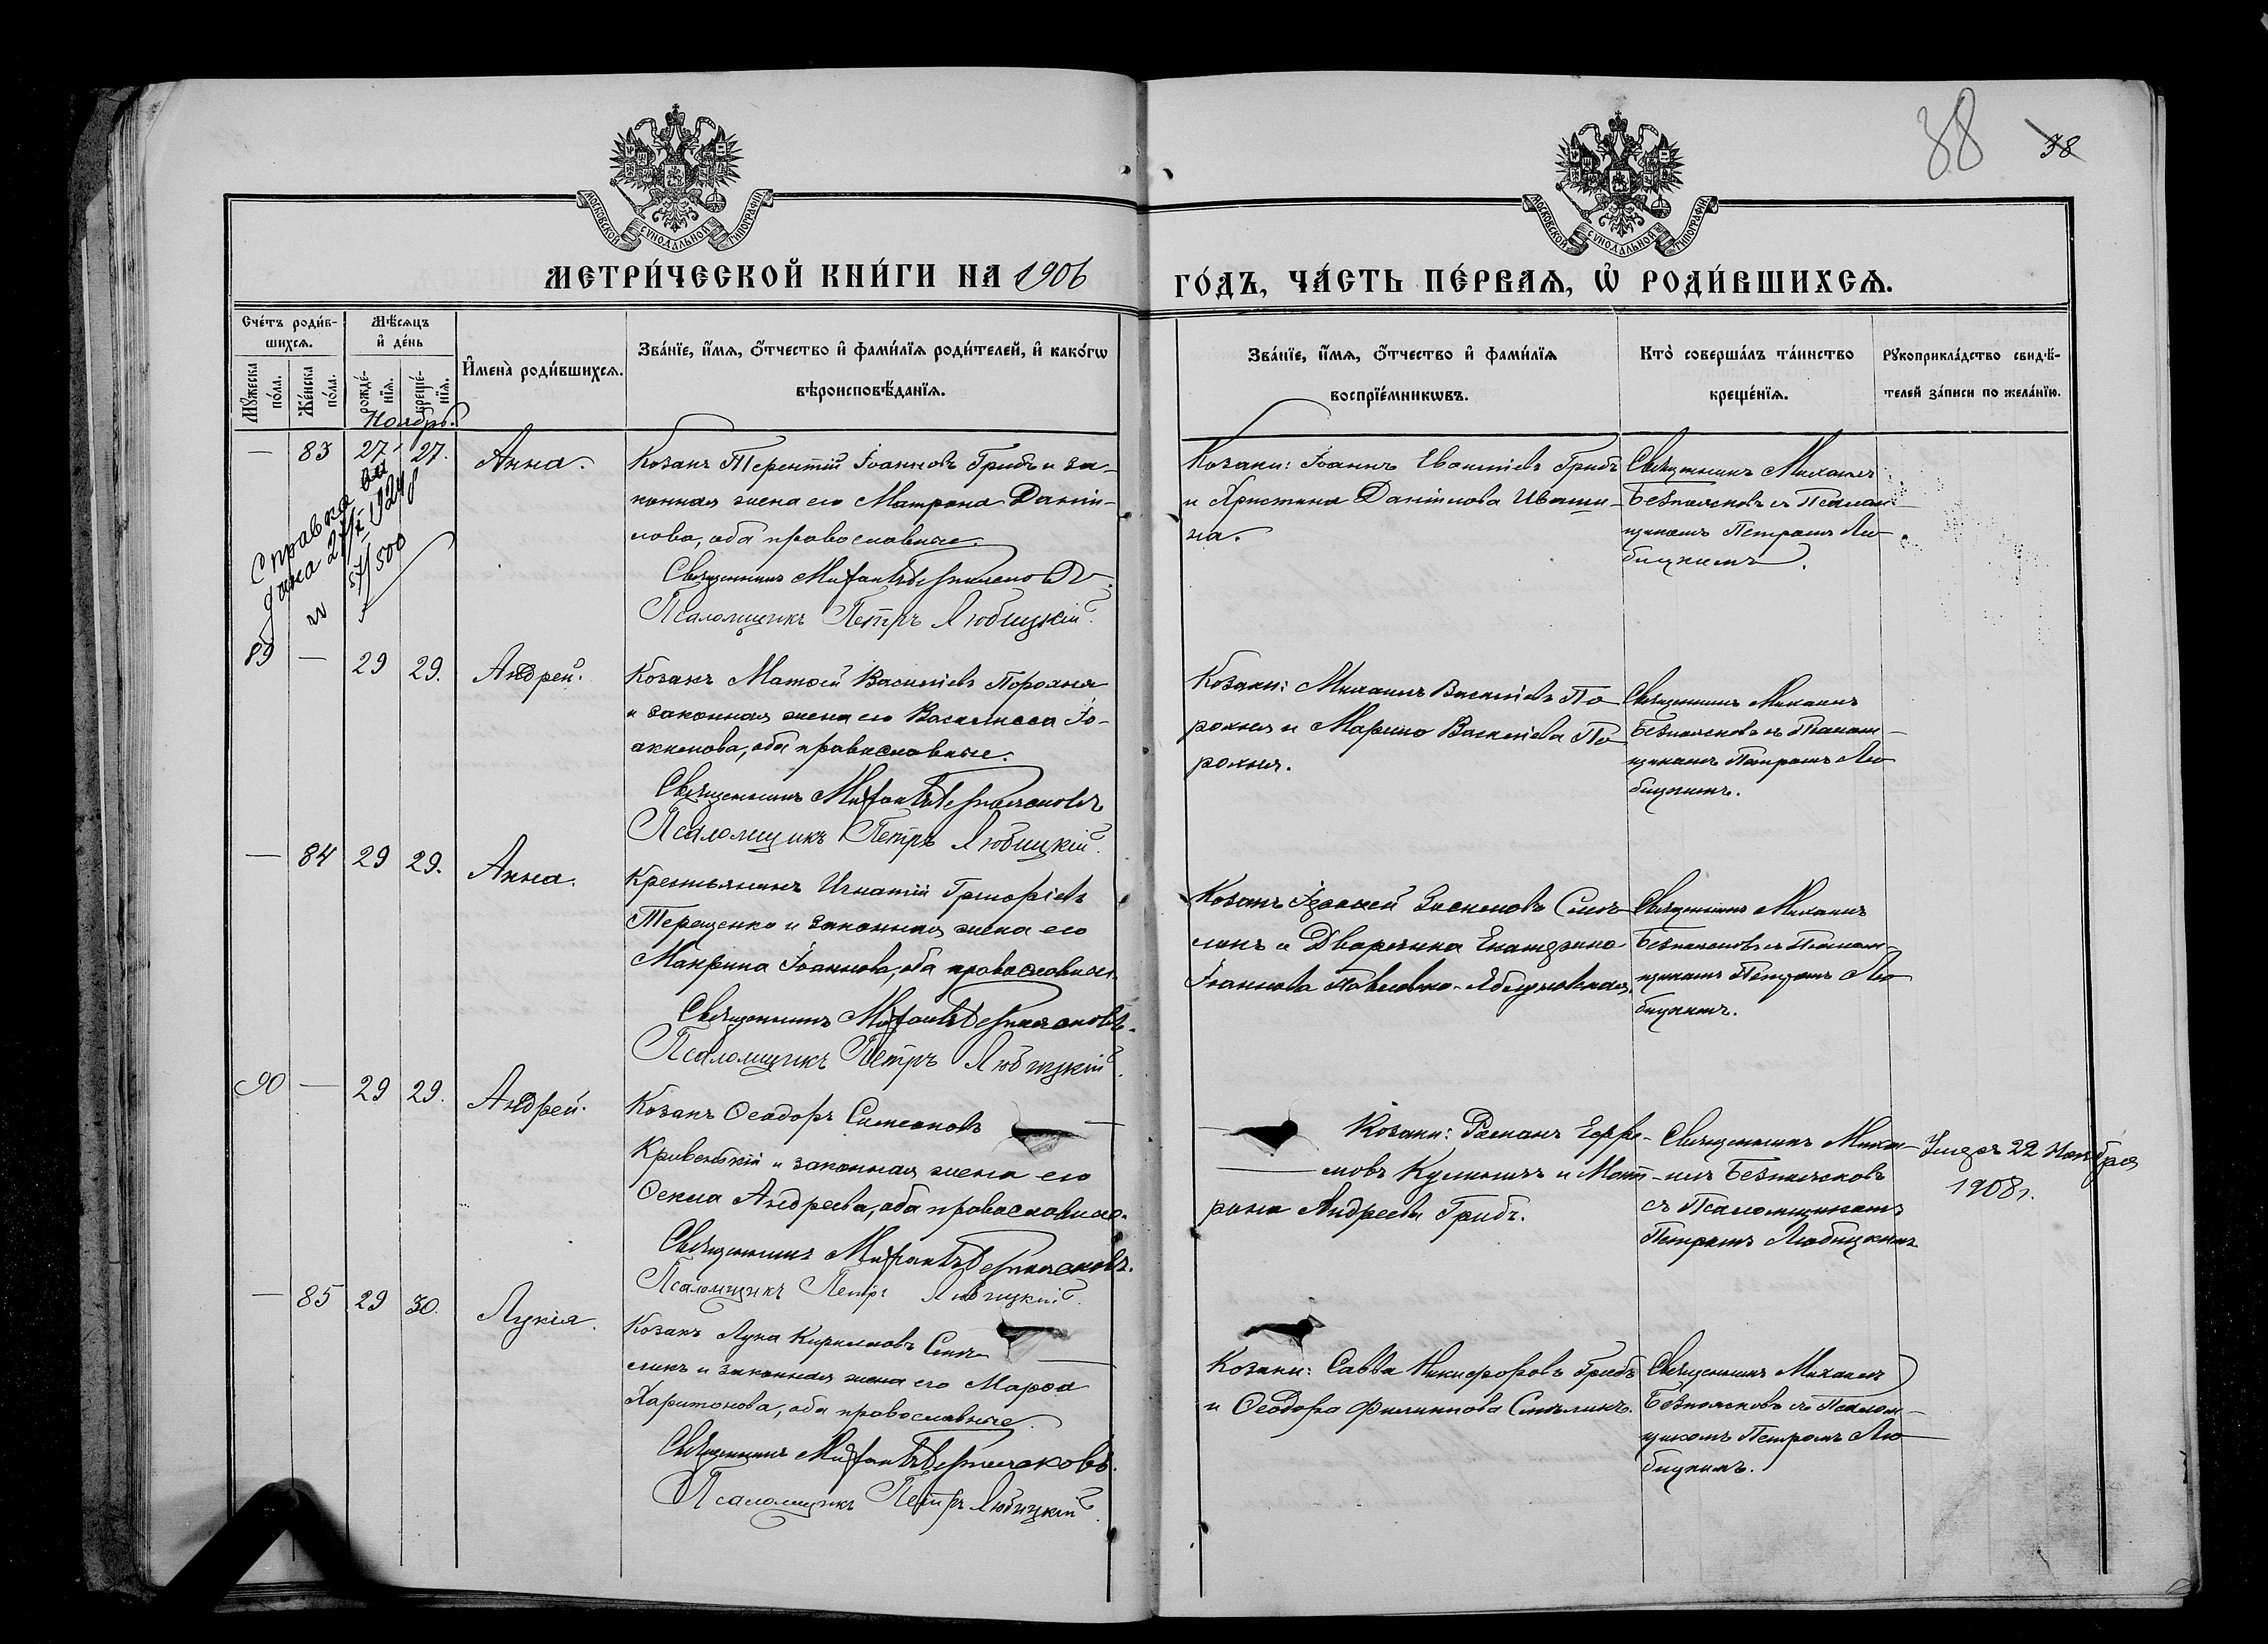 38
38
МОСКОВСКОЙ СѴНОДАЛЬНОЙ ТИПОГРАФІИ
МОСКОВСКОЙ СѴНОДАЛЬНОЙ ТИПОГРАФІИ
МЕТРИ́ЧЕСКОЙ КНИ́ГИ НА 1906
ГО́ДЪ, ЧА́СТЬ ПЕ́РВАѦ, Ѡ҆ РОДИ́ВШИХСѦ.
Сче́тъ роди́в-
шихсѧ.
Мꙋ́жеска
по́ла.
Же́нска
по́ла.
Мѣ́сѧцъ
и҆ де́нь
рожде́-
нїѧ.
креще́-
нїѧ.
И҆мена̀ роди́вшихсѧ.
Зва́нїе, и҆́мѧ, ѻ҆́тчество и҆ фами́лїѧ роди́телей, и҆ како́гѡ
вѣроисповѣ́данїѧ.
Зва́нїе, и҆́мѧ, ѻ҆́тчество и҆ фами́лїѧ
воспрїе́мникѡвъ.
Кто̀ соверша́лъ та́инство
креще́нїѧ.
Рꙋкоприкла́дство свидѣ́-
телей за́писи по жела́нїю.
Ноябрь.
— 83 27 27. Анна.
Козакъ Терентій Іоанновъ Грибъ и за-
конная жена его Матрона Даніи-
лова, оба православные.
Священникъ Михаилъ Безпоясковъ.
Псаломщикъ Петръ Любицкій.
Козаки: Іоаннъ Евфиміевъ Грибъ
и Христина Даніилова Иваши-
на.
Священникъ Михаилъ
Безпоясковъ съ Псалом-
щикомъ Петромъ Лю-
бицкимъ.
Справка вы
дана 27/X 1924
N 57/500
89 — 29 29. Андрей.
Козакъ Матѳей Васильевъ Порохня
и законная жена его Василисса Іо-
акимова, оба православные.
Священникъ Михаилъ Безпоясковъ
Псаломщикъ Петръ Любицкій.
Козаки: Михаилъ Васильевъ По-
рохня и Марина Васильева По-
рохня.
Священникъ Михаилъ
Безпоясковъ съ Псалом-
щикомъ Петромъ Лю-
бицкимъ.
— 84 29 29. Анна.
Крестьянинъ Игнатій Григоріевъ
Терещенко и законная жена его
Макрина Іоаннова, оба православные.
Священникъ Михаилъ Безпоясковъ.
Псаломщикъ Петръ Любицкій.
Козакъ Смоч-
ликъ и Дворянка Екатерина
Іоаннова Павловко-Яблуновская.
Священникъ Михаилъ
Безпоясковъ съ Псалом-
щикомъ Петромъ Лю-
бицкимъ.
90 — 29 29. Андрей.
Козакъ Ѳеодоръ Симеоновъ
Кривенскій и законная жена его
Ѳекла Андреева, оба православные.
Священникъ Михаилъ Безпоясковъ.
Псаломщикъ Петръ Любицкій.
Козаки: Романъ Ефре-
мовъ Кулиничъ и Мат-
рона Андреева Грибъ.
Священникъ Миха-
илъ Безпоясковъ
съ Псаломщикомъ
Петромъ Любицкимъ
Умеръ 22 Ноября
1908 г.
— 85 29 30. Лукія.
Козакъ Лука Кирилловъ Смоч-
ликъ и законная жена его Марѳа
Харитонова, оба православные.
Священникъ Михаилъ Безпоясковъ.
Псаломщикъ Петръ Любицкій.
Козаки: Савва Никифоровъ Грибъ
и Ѳеодора Филиппова Смочликъ.
Священникъ Михаилъ
Безпоясковъ съ Псалом-
щикомъ Петромъ Лю-
бицкимъ.